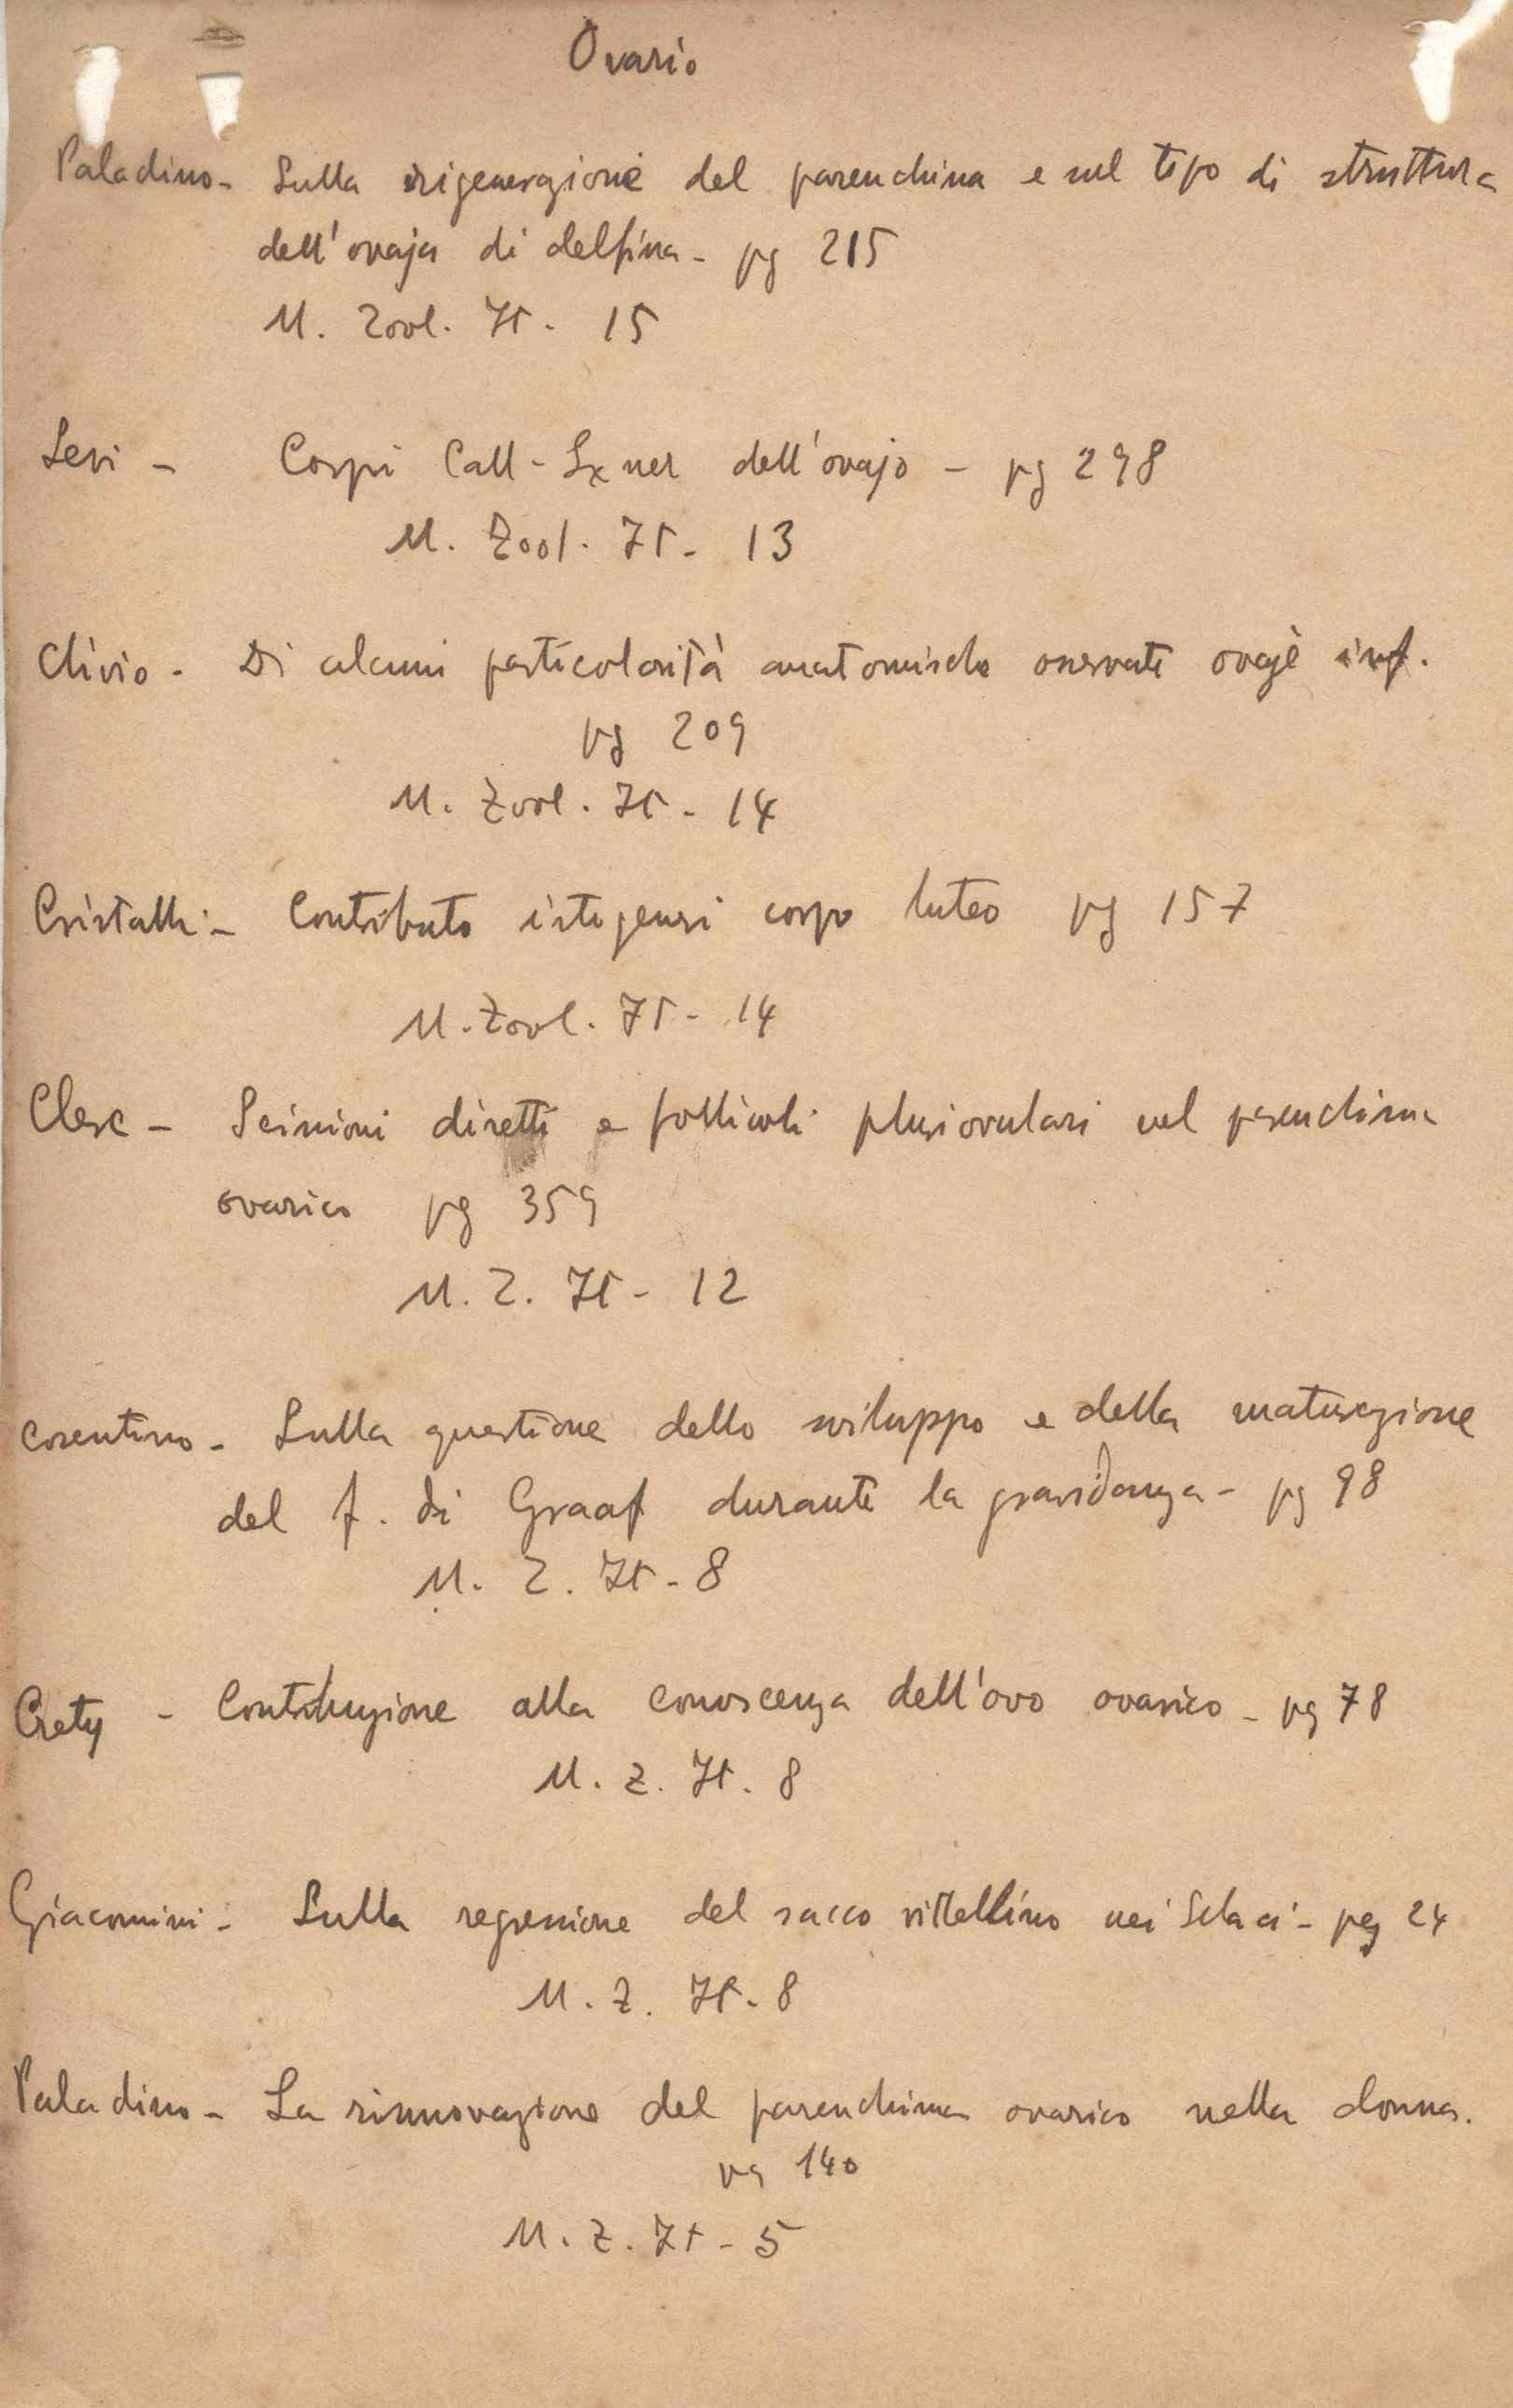 Ovario
Paladino - Sulla rigenerazione del parenchima e sul tipo di struttura
dell'ovaja di delfina - pg 215
M. Zool. It. 15
Levi - Corpi Call-Exner dell'ovajo - pg 298
M. Zool. It - 13
Clivio - Di alcuni particolarità anatomiche osservate ovaje inf.
pg 209
M. Zool. It - 14
Cristalli - Contributo istogenesi corpo luteo pg 157
M. Zool. It - 14
Clerc - Scissioni diretti e follicoli pluriovulari nel parenchima
ovarico pg 359
M. Z. It - 12
Cosentino - Sulla questione dello sviluppo e della maturazione
del f. di Graaf durante la gravidanza - pg 98
M. Z. It - 8
Crety - Contribuzione alla conoscenza dell'ovo ovarico - pg 78
M. Z. It. 8
Giacomini - Sulla regressione del sacco vitellino nei Selaci - pg 24
M. Z. It - 8
Paladino - La rinnovazione del parenchima ovarico nella donna.
pg 140
M. Z. It - 5